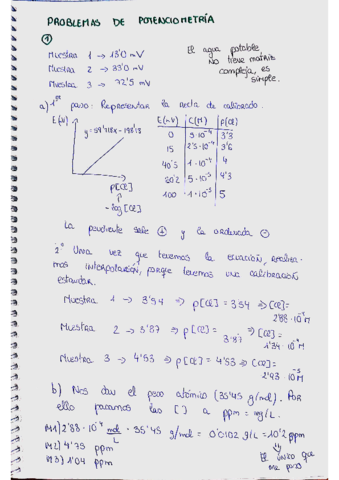 PROBLEMAS DE POTENCIOMETRÍA
①
Muestra 1 → 13'0 mV
Muestra 2 → 33'0 mV
Muestra 3 → 72'5 mV
El agua potable
NO tiene matriz
compleja, es
simple.
a) 1er paso: Representar la recta de calibrado.
E(V)
p[Cl]
-log[Cl]
E(mV) C(M) p[Cl]
0 5·10⁻⁴ 3'3
15 2'5·10⁻⁴ 3'6
40'5 1·10⁻⁴ 4
80'2 5·10⁻⁵ 4'3
100 1·10⁻⁵ 5
La pendiente sale ⊕ y la ordenada ⊖
2º Una vez que tenemos la ecuación, realiza-
mos interpolación, porque tenemos una calibración
estándar.
Muestra 1 → 3'54 ⇒ p[Cl] = 3'54 ⇒ [Cl] =
2'88·10⁻⁴ M
Muestra 2 → 3'87 ⇒ p[Cl] = 3'87 ⇒ [Cl] =
1'34·10⁻⁴ M
Muestra 3 → 4'53 ⇒ p[Cl] = 4'53 ⇒ [Cl] =
2'93 10⁻⁵ M
b) Nos dan el peso atómico (35'45 g/mol). Por
ello pasamos las [ ] a ppm = mg/L.
M1) 2'88·10⁻⁴ mol/L · 35'45 g/mol = 0'0102 g/L = 10'2 ppm
M2) 4'75 ppm
M3) 1'04 ppm
El único que